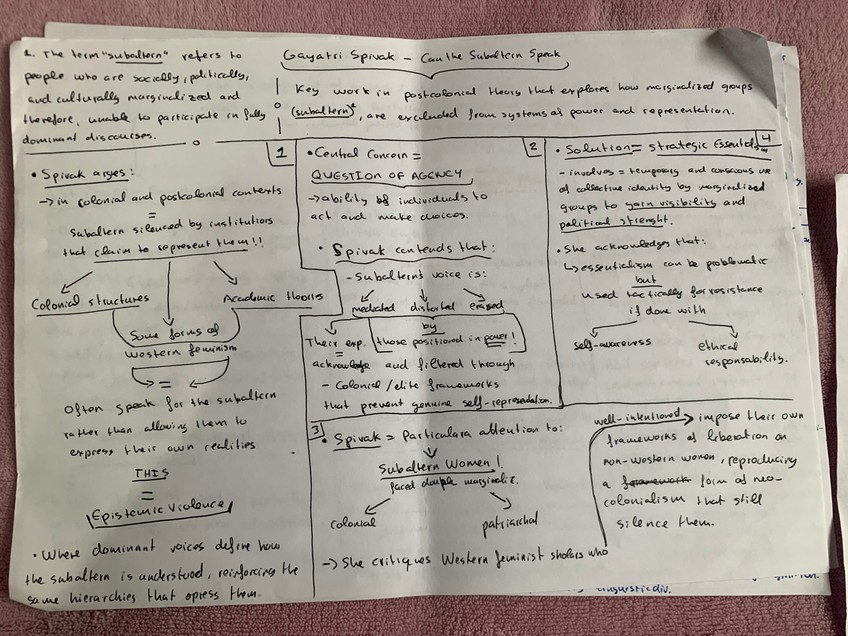 1. The term "subaltern" refers to
people who are socially, politically,
and culturally marginalized and
therefore, unable to participate in fully
dominant discourses.
Gayatri Spivak - Can the Subaltern Speak
Key work in postcolonial theory that explores how marginalized groups
(subaltern)*, are excluded from systems of power and representation.
1
• Spivak arges:
→ in colonial and postcolonial contexts
=
subaltern silenced by institutions
that claim to represent them!!
Colonial structures
Academic theories
Some forms of
western feminism
=
Often speak for the subaltern
rather than allowing them to
express their own realities
THIS
=
Epistemic Violence
• Where dominant voices define how
the subaltern is understood, reinforcing the
same hierarchies that opress them.
2
• Central Concern =
QUESTION OF AGENCY
→ ability of individuals to
act and make choices.
• Spivak contends that:
- subaltern's voice is:
mediated distorted erased
by
Their exp. those positioned in power!
=
acknowledge and filtered through
- Colonial/elite frameworks
that prevent genuine self-representation.
3
• Spivak = Particulara attention to:
Subaltern Women!
faced double marginaliz.
colonial
patriarchal
→ She critiques Western feminist sholars who
well-intentioned → impose their own
frameworks of liberation on
non-western women, reproducing
a framework form of neo-
colonialism that still
silence them.
4
• Solution = strategic Essentialism
- involves = temporary and conscious use
of collective identity by marginalized
groups to gain visibility and
political strenght.
• She acknowledges that:
↳ essentialism can be problematic
but
used tactically for resistance
if done with
self-awareness
ethical
responsability.